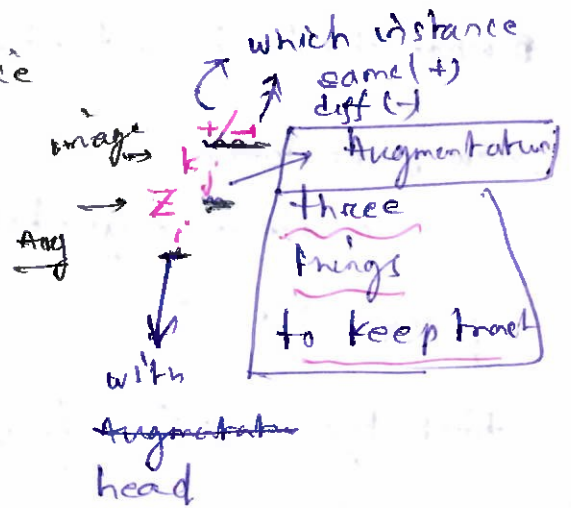 which instance
same (+)
diff (-)
image
+/-
k
j
Z
i
Augmentation
three
things
to keep track
Aug
with
head